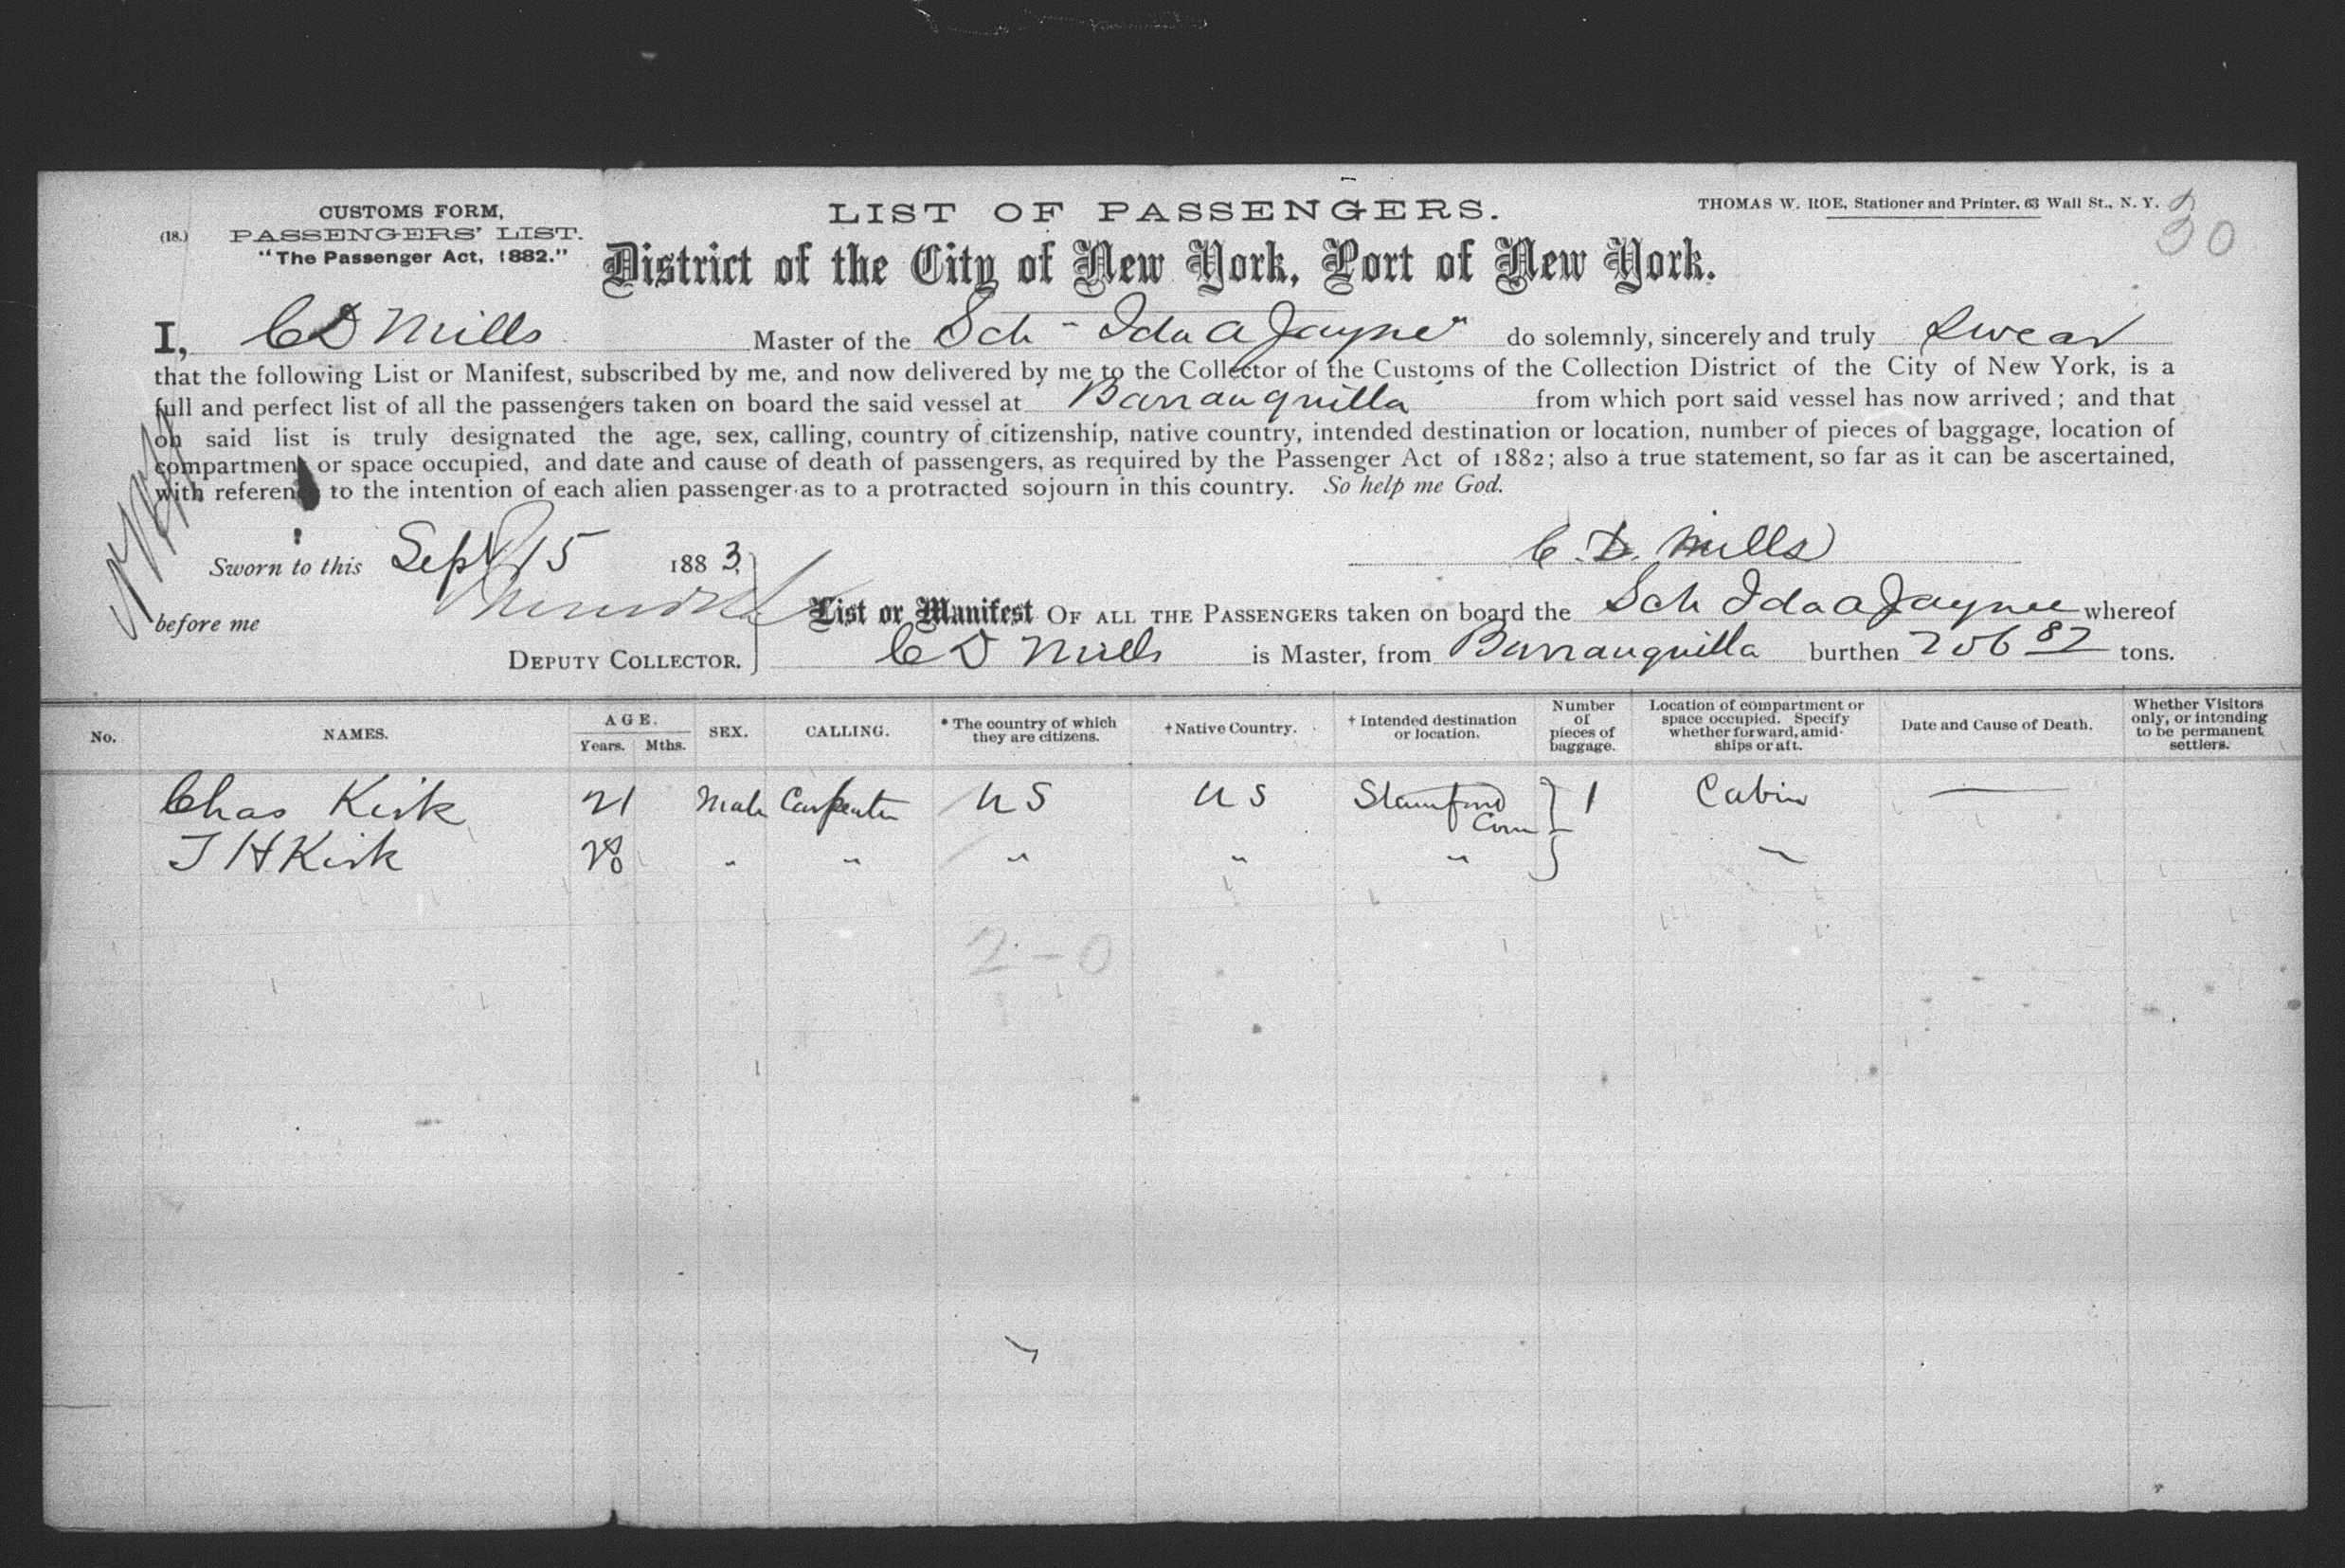 CUSTOMS FORM,
(18.) PASSENGERS' LIST.
"The Passenger Act, 1882."
LIST OF PASSENGERS.
THOMAS W. ROE, Stationer and Printer, 63 Wall St., N. Y.
30
District of the City of New York, Port of New York.
I, C D Mills Master of the Sch "Ida A Jayne" do solemnly, sincerely and truly swear
that the following List or Manifest, subscribed by me, and now delivered by me to the Collector of the Customs of the Collection District of the City of New York, is a
full and perfect list of all the passengers taken on board the said vessel at Barranquilla from which port said vessel has now arrived; and that
on said list is truly designated the age, sex, calling, country of citizenship, native country, intended destination or location, number of pieces of baggage, location of
compartment or space occupied, and date and cause of death of passengers, as required by the Passenger Act of 1882; also a true statement, so far as it can be ascertained,
with reference to the intention of each alien passenger as to a protracted sojourn in this country. So help me God.
Sworn to this Sept 15 1883,
C. D. Mills
before me
DEPUTY COLLECTOR.
List or Manifest OF ALL THE PASSENGERS taken on board the Sch Ida A Jayne whereof
C D Mills is Master, from Barranquilla burthen 256 82 tons.
No. NAMES. AGE. Years. Mths. SEX. CALLING. * The country of which they are citizens. † Native Country. † Intended destination or location. Number of pieces of baggage. Location of compartment or space occupied. Specify whether forward, amidships or aft. Date and Cause of Death. Whether Visitors only, or intending to be permanent settlers.
Chas Kirk 21 Male Carpenter U S U S Stamford Conn } 1 Cabin —
T H Kirk 28 " " " " " "
2 - 0